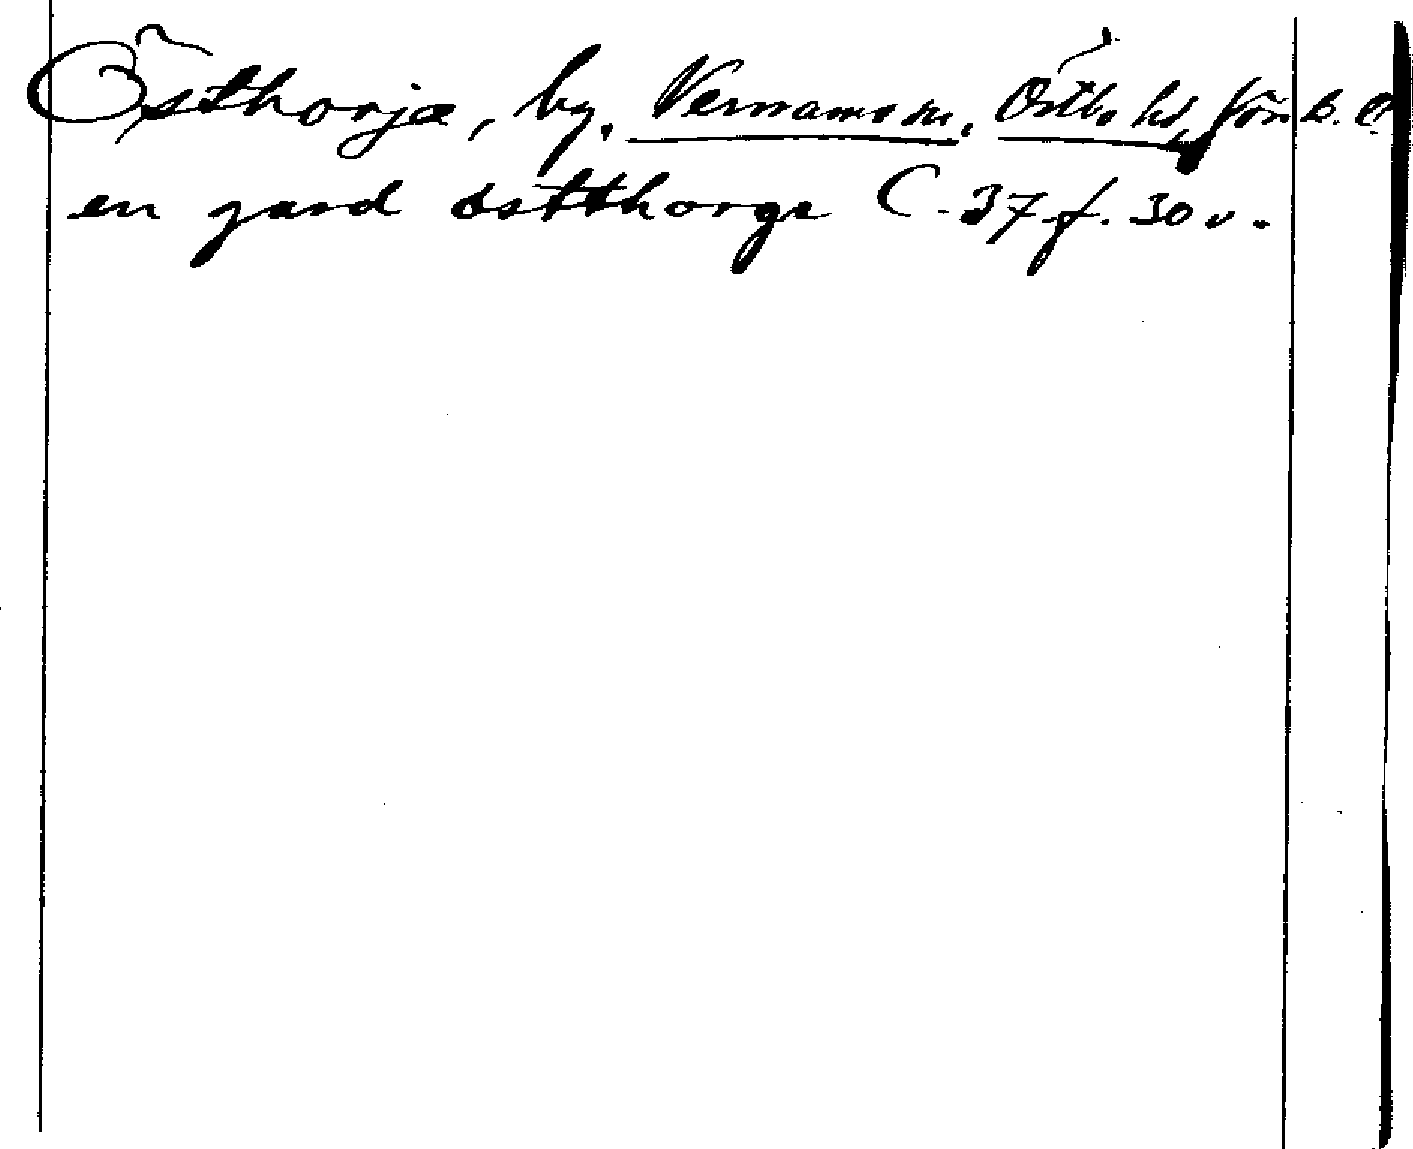 Östhorja, by, Vernamo sn, Östbo hd, Jönk. l.
en gard østthorge C. 37 f. 30 v.